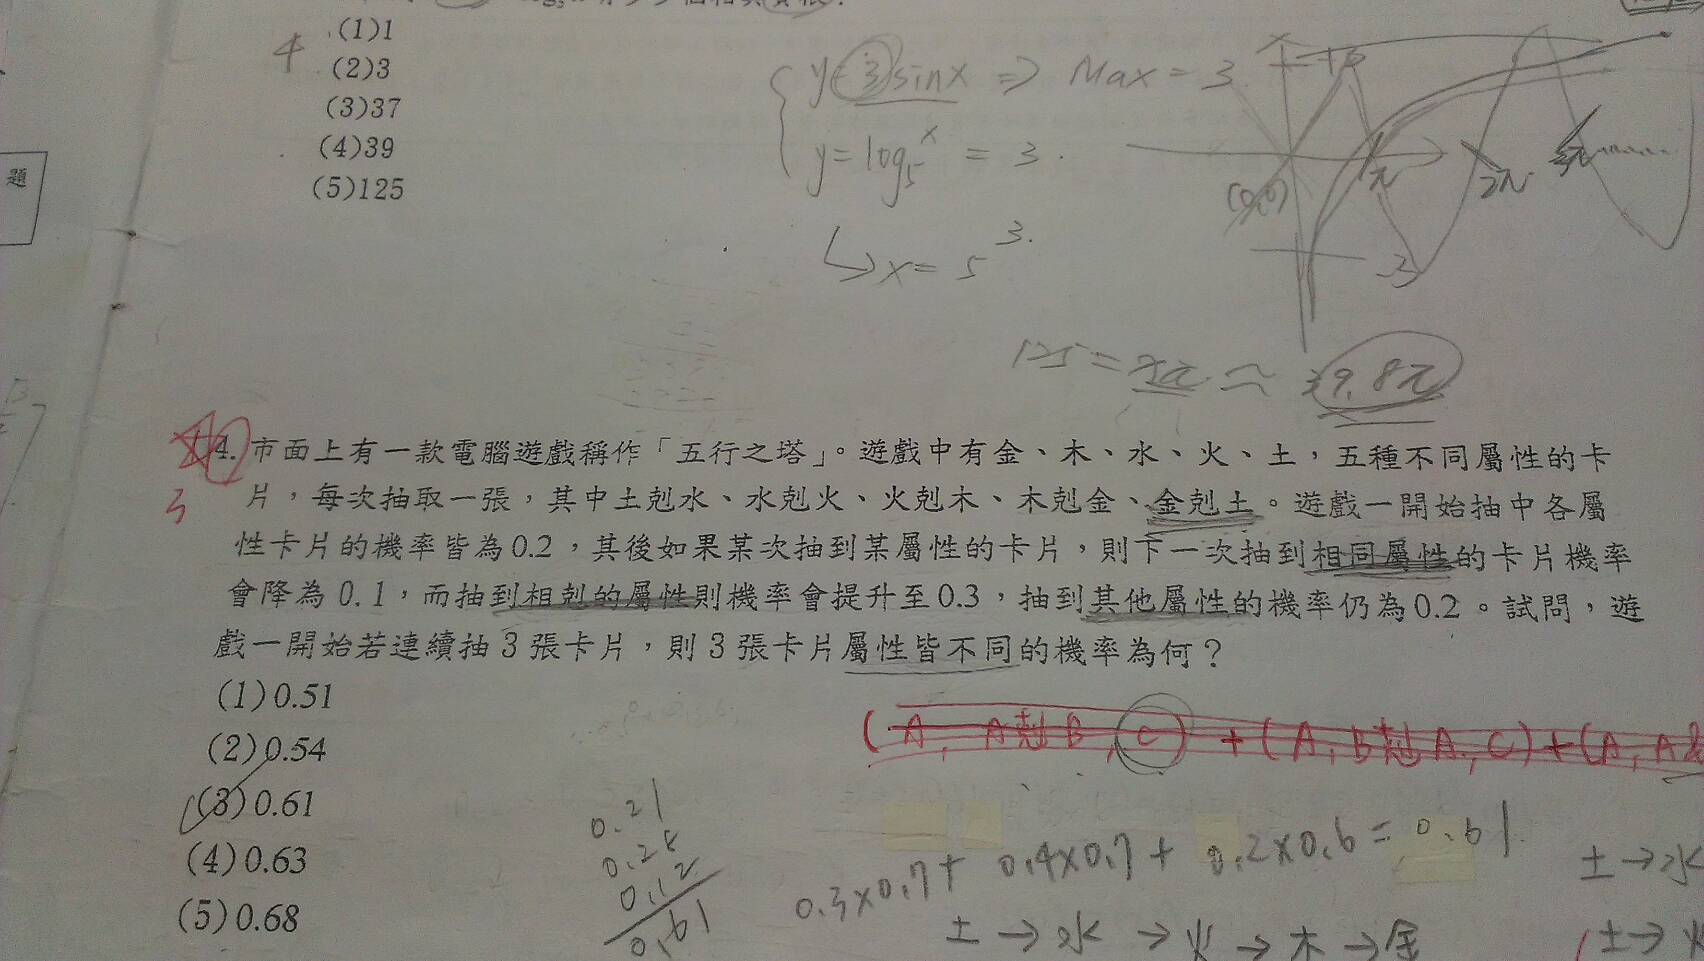 (1)1
4
(2)3
(3)37
(4)39
(5)125
題
y=3sinx ⇒ Max = 3
y=log₅x = 3.
↳x= 5³.
(0,0)
π
2π
3π
-3
≈ 39.8π
14. 市面上有一款電腦遊戲稱作「五行之塔」。遊戲中有金、木、水、火、土，五種不同屬性的卡
3
片，每次抽取一張，其中土剋水、水剋火、火剋木、木剋金、金剋土。遊戲一開始抽中各屬
性卡片的機率皆為0.2，其後如果某次抽到某屬性的卡片，則下一次抽到相同屬性的卡片機率
會降為0.1，而抽到相剋的屬性則機率會提升至0.3，抽到其他屬性的機率仍為0.2。試問，遊
戲一開始若連續抽3張卡片，則3張卡片屬性皆不同的機率為何？
(1)0.51
(2)0.54
(3)0.61
(4)0.63
(5)0.68
(A, A剋B, C) + (A, B剋A, C)+(A, A
0.21
0.28
0.12
0.61
0.3×0.7+ 0.4×0.7+ 0.2×0.6= 0.61
土→水→火→木→金
土→水
土→火